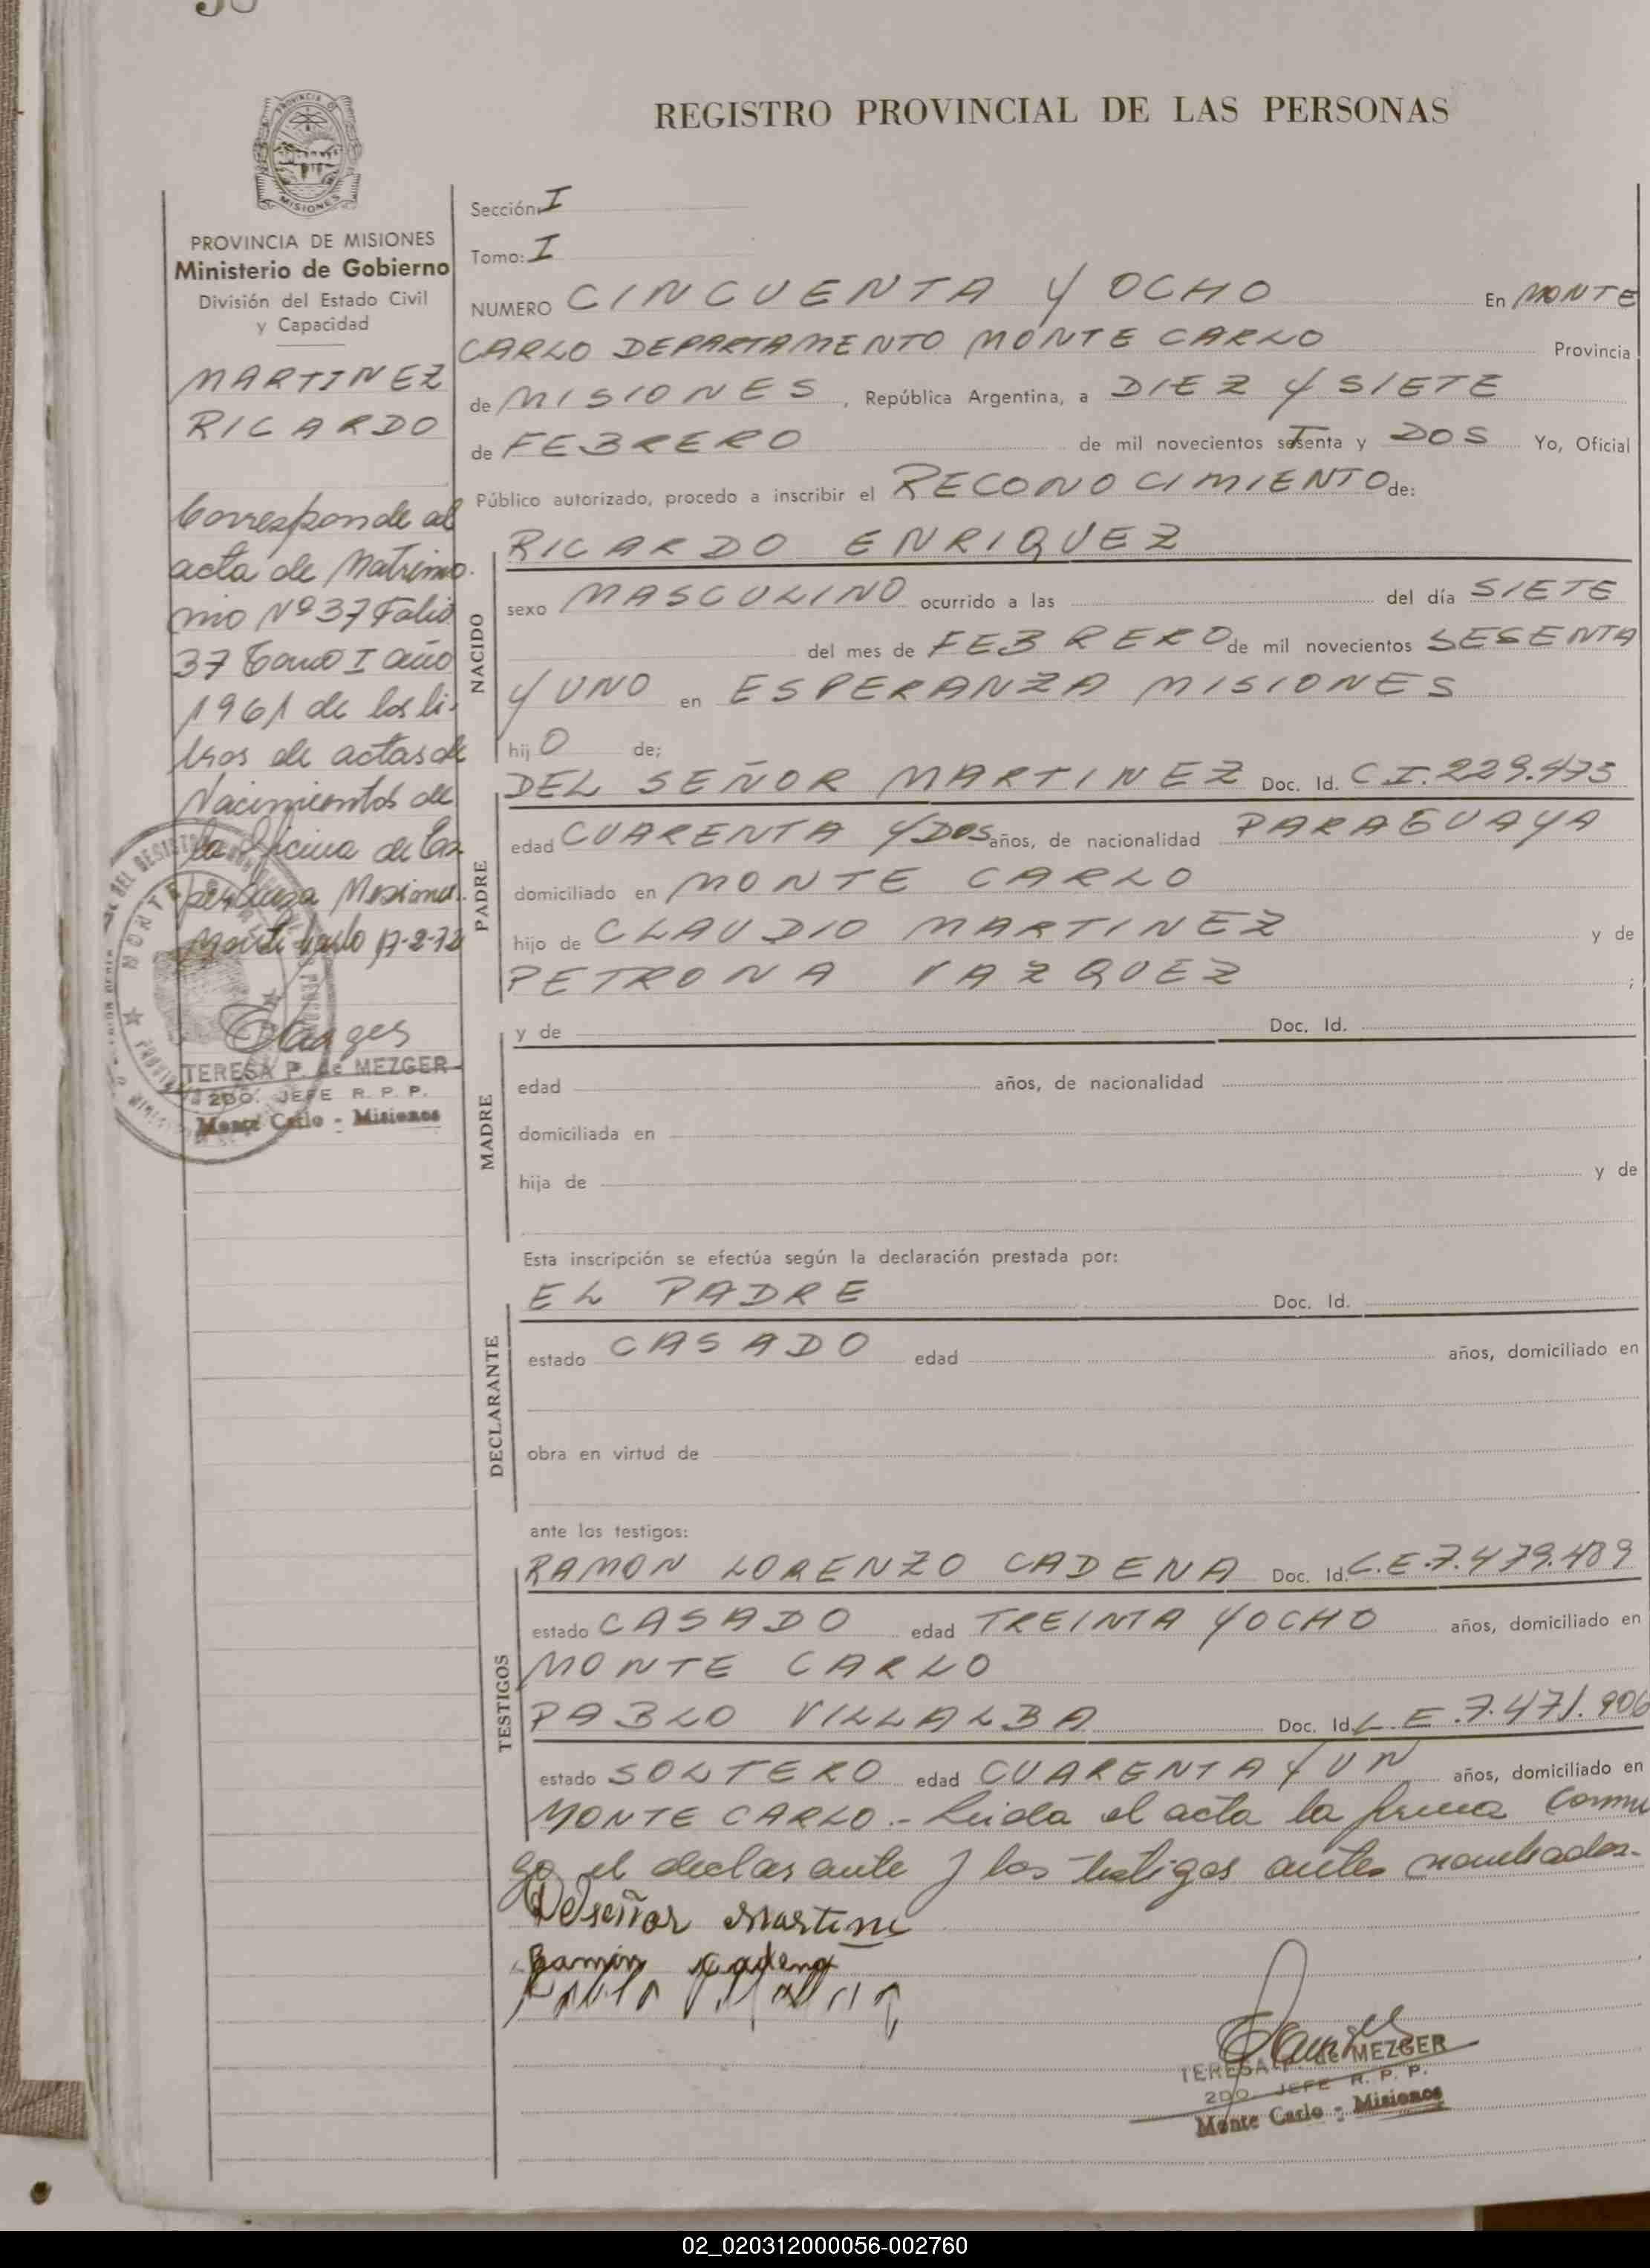 REGISTRO PROVINCIAL DE LAS PERSONAS
PROVINCIA DE MISIONES
Ministerio de Gobierno
División del Estado Civil
y Capacidad
MARTINEZ
RICARDO
Corresponde al
acta de Matrimo
nio Nº 37 Folio
37 Tomo I año
1961 de los li-
bros de actas de
Nacimientos de
la Oficina de Es
peranza Misiones.
Monte Carlo 17-2-72
TERESA P. de MEZGER
2DO. JEFE R. P. P.
Monte Carlo - Misiones
Sección: I
Tomo: I
NUMERO CINCUENTA Y OCHO En MONTE
CARLO DEPARTAMENTO MONTE CARLO Provincia
de MISIONES, República Argentina, a DIEZ Y SIETE
de FEBRERO de mil novecientos setenta y DOS Yo, Oficial
Público autorizado, procedo a inscribir el RECONOCIMIENTO de:
NACIDO
RICARDO ENRIQUEZ
sexo MASCULINO ocurrido a las del día SIETE
del mes de FEBRERO de mil novecientos SESENTA
Y UNO en ESPERANZA MISIONES
hij O de;
PADRE
DEL SEÑOR MARTINEZ Doc. Id. C I. 229.475
edad CUARENTA Y DOS años, de nacionalidad PARAGUAYA
domiciliado en MONTE CARLO
hijo de CLAUDIO MARTINEZ y de
PETRONA VAZQUEZ ;
MADRE
y de Doc. Id.
edad años, de nacionalidad
domiciliada en
hija de y de
Esta inscripción se efectúa según la declaración prestada por:
DECLARANTE
EL PADRE Doc. Id.
estado CASADO edad años, domiciliado en
obra en virtud de
ante los testigos:
TESTIGOS
RAMON LORENZO CADENA Doc. Id. L.E. 7.479.489
estado CASADO edad TREINTA Y OCHO años, domiciliado en
MONTE CARLO
PABLO VILLALBA Doc. Id L.E. 7.471.906
estado SOLTERO edad CUARENTA Y UN años, domiciliado en
MONTE CARLO.- Leida el acta la firma conmi
go el declarante y los testigos antes nombrados.-
Delseñor Martine
Ramón Cadena
Pablo Villalba
TERESA P. de MEZGER
2DO. JEFE R. P. P.
Monte Carlo - Misiones
02_020312000056-002760